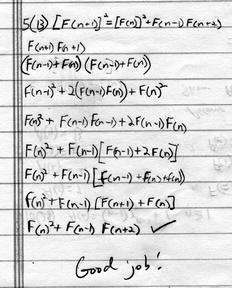 5(13) [F(n+1)]² = [F(n)]² + F(n-1) F(n+2)
F(n+1) F(n+1)
(F(n-1)+F(n)) (F(n-1)+F(n))
F(n-1)² + 2(F(n-1)F(n)) + F(n)²
F(n)² + F(n-1) F(n-1) + 2F(n-1) F(n)
F(n)² + F(n-1) [F(n-1) + 2F(n)]
F(n)² + F(n-1) [F(n-1) + F(n) + F(n)]
F(n)² + F(n-1) [F(n+1) + F(n)]
F(n)² + F(n-1) F(n+2) ✓
Good job!